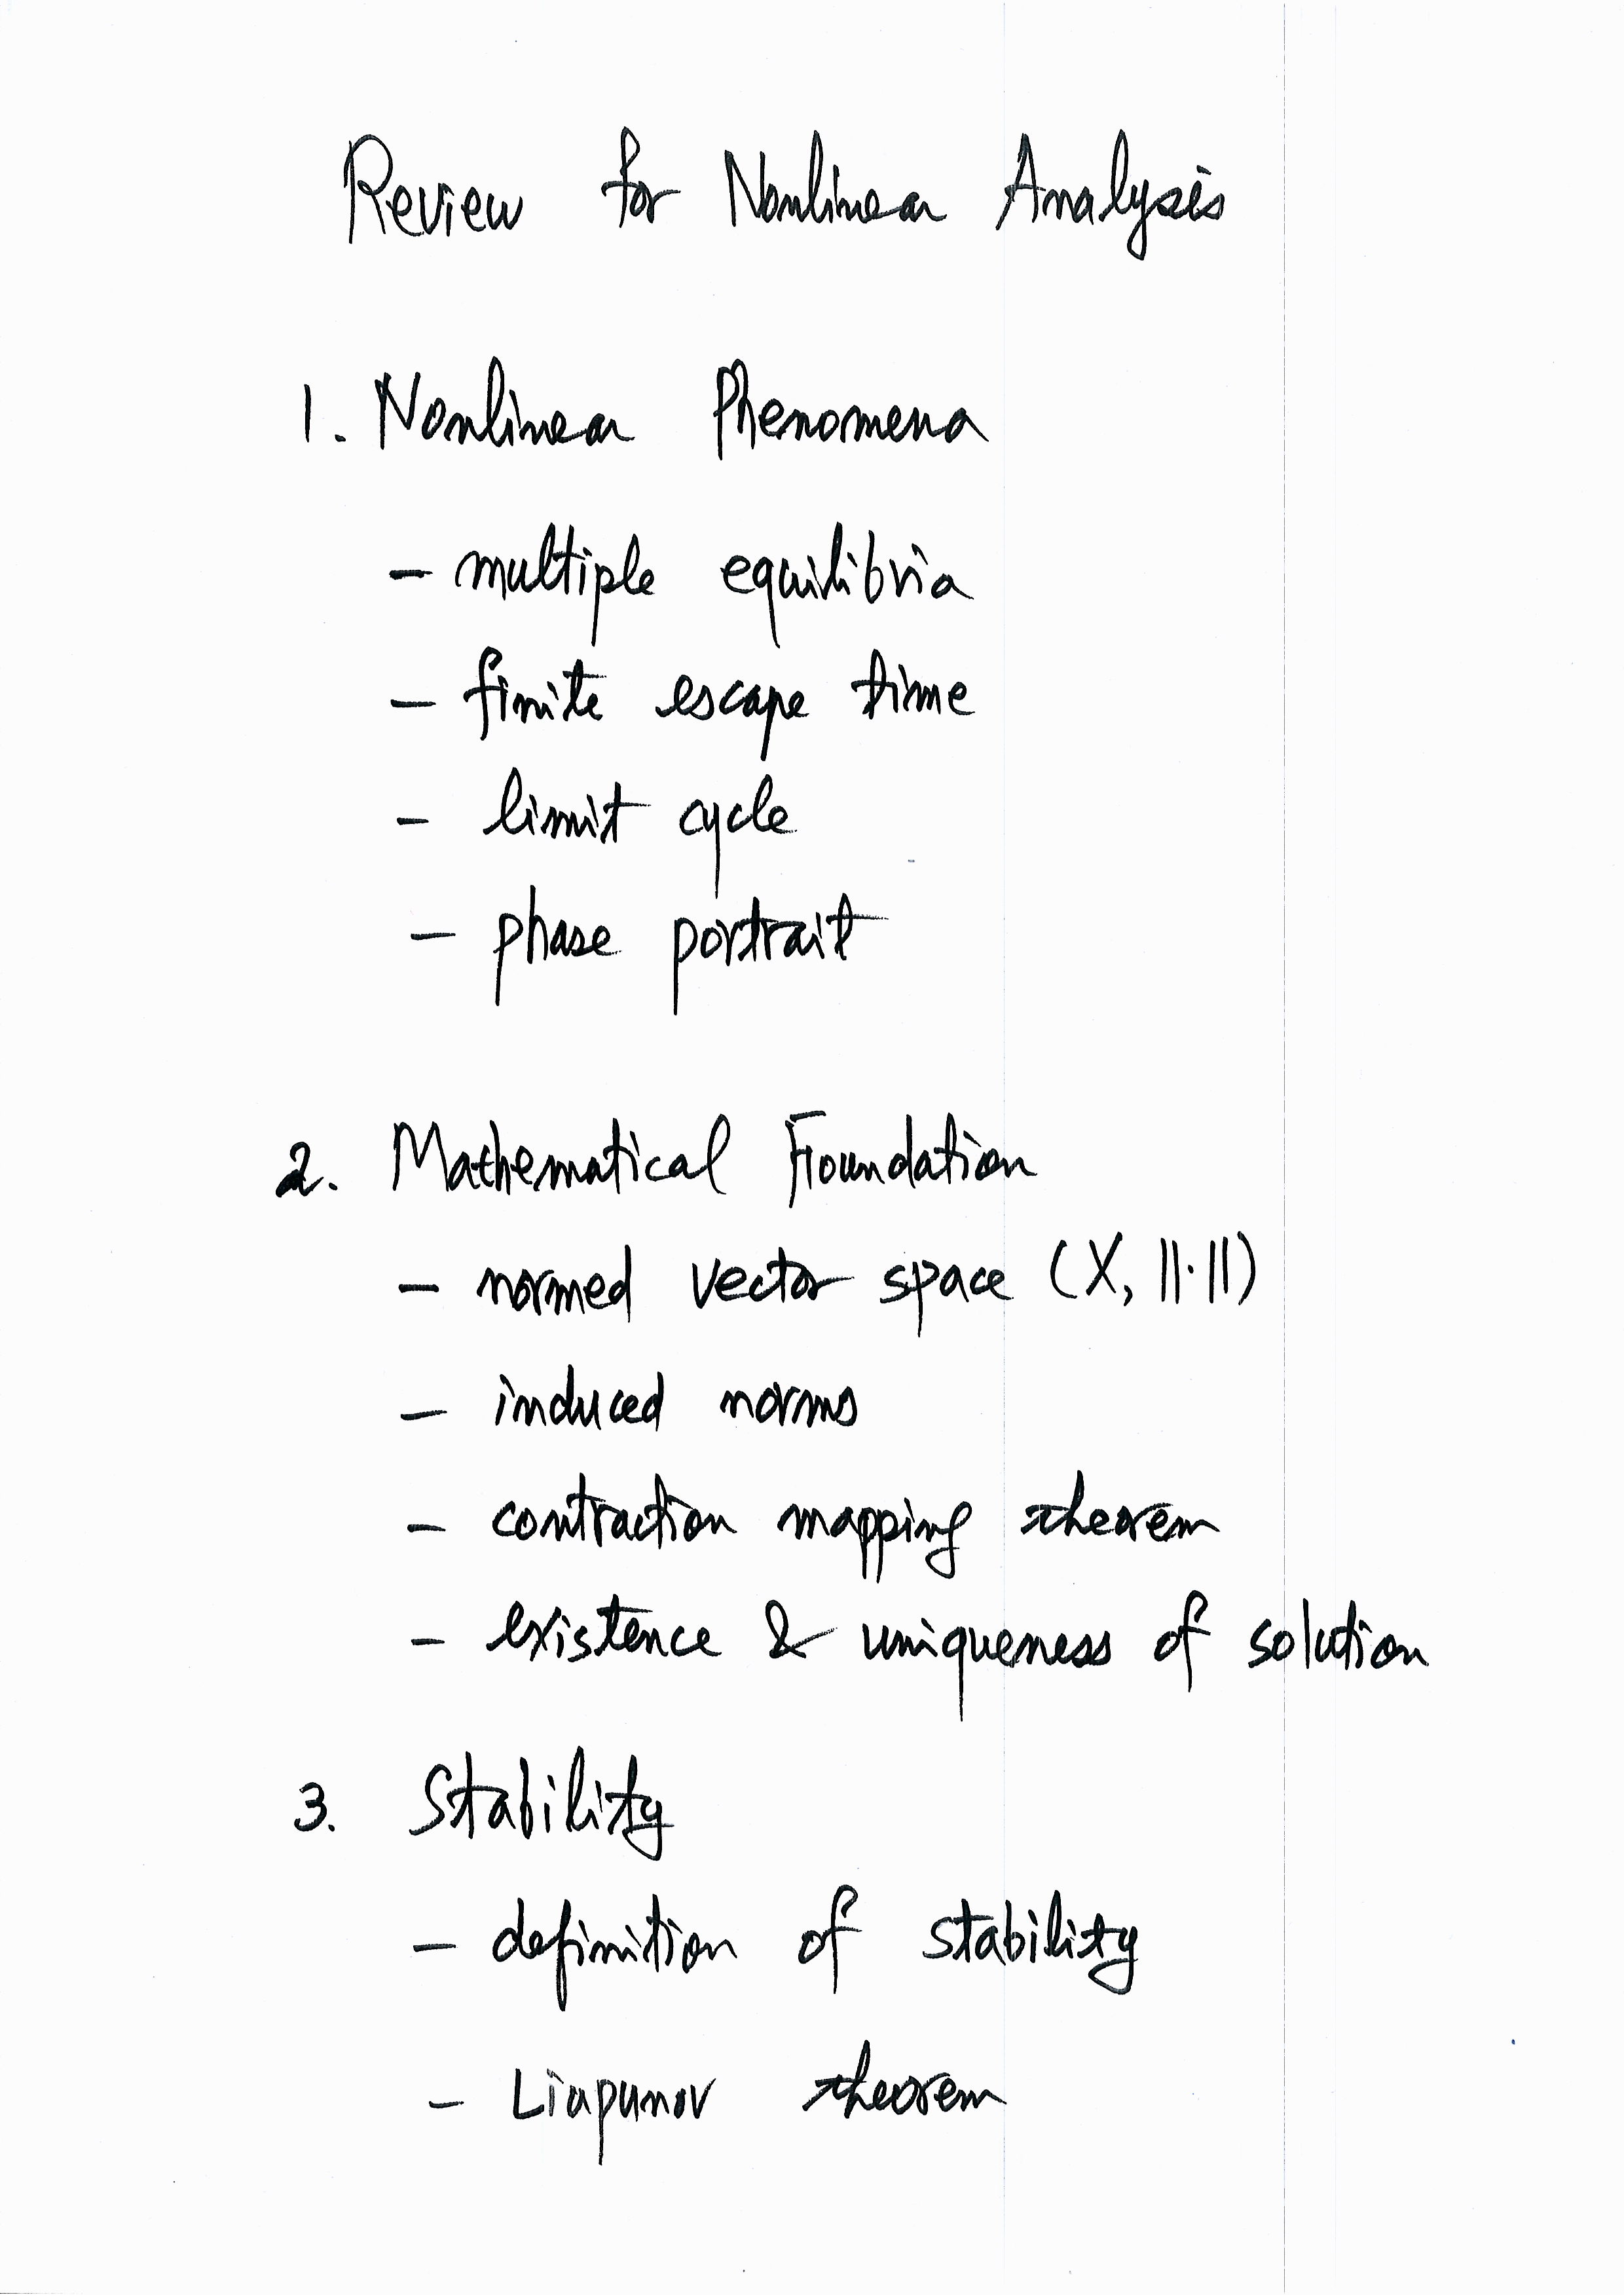 Review for Nonlinear Analysis
1. Nonlinear Phenomena
- multiple equilibria
- finite escape time
- limit cycle
- phase portrait
2. Mathematical Foundation
- normed vector space (X, ||·||)
- induced norms
- contraction mapping theorem
- existence & uniqueness of solution
3. Stability
- definition of stability
- Liapunov theorem